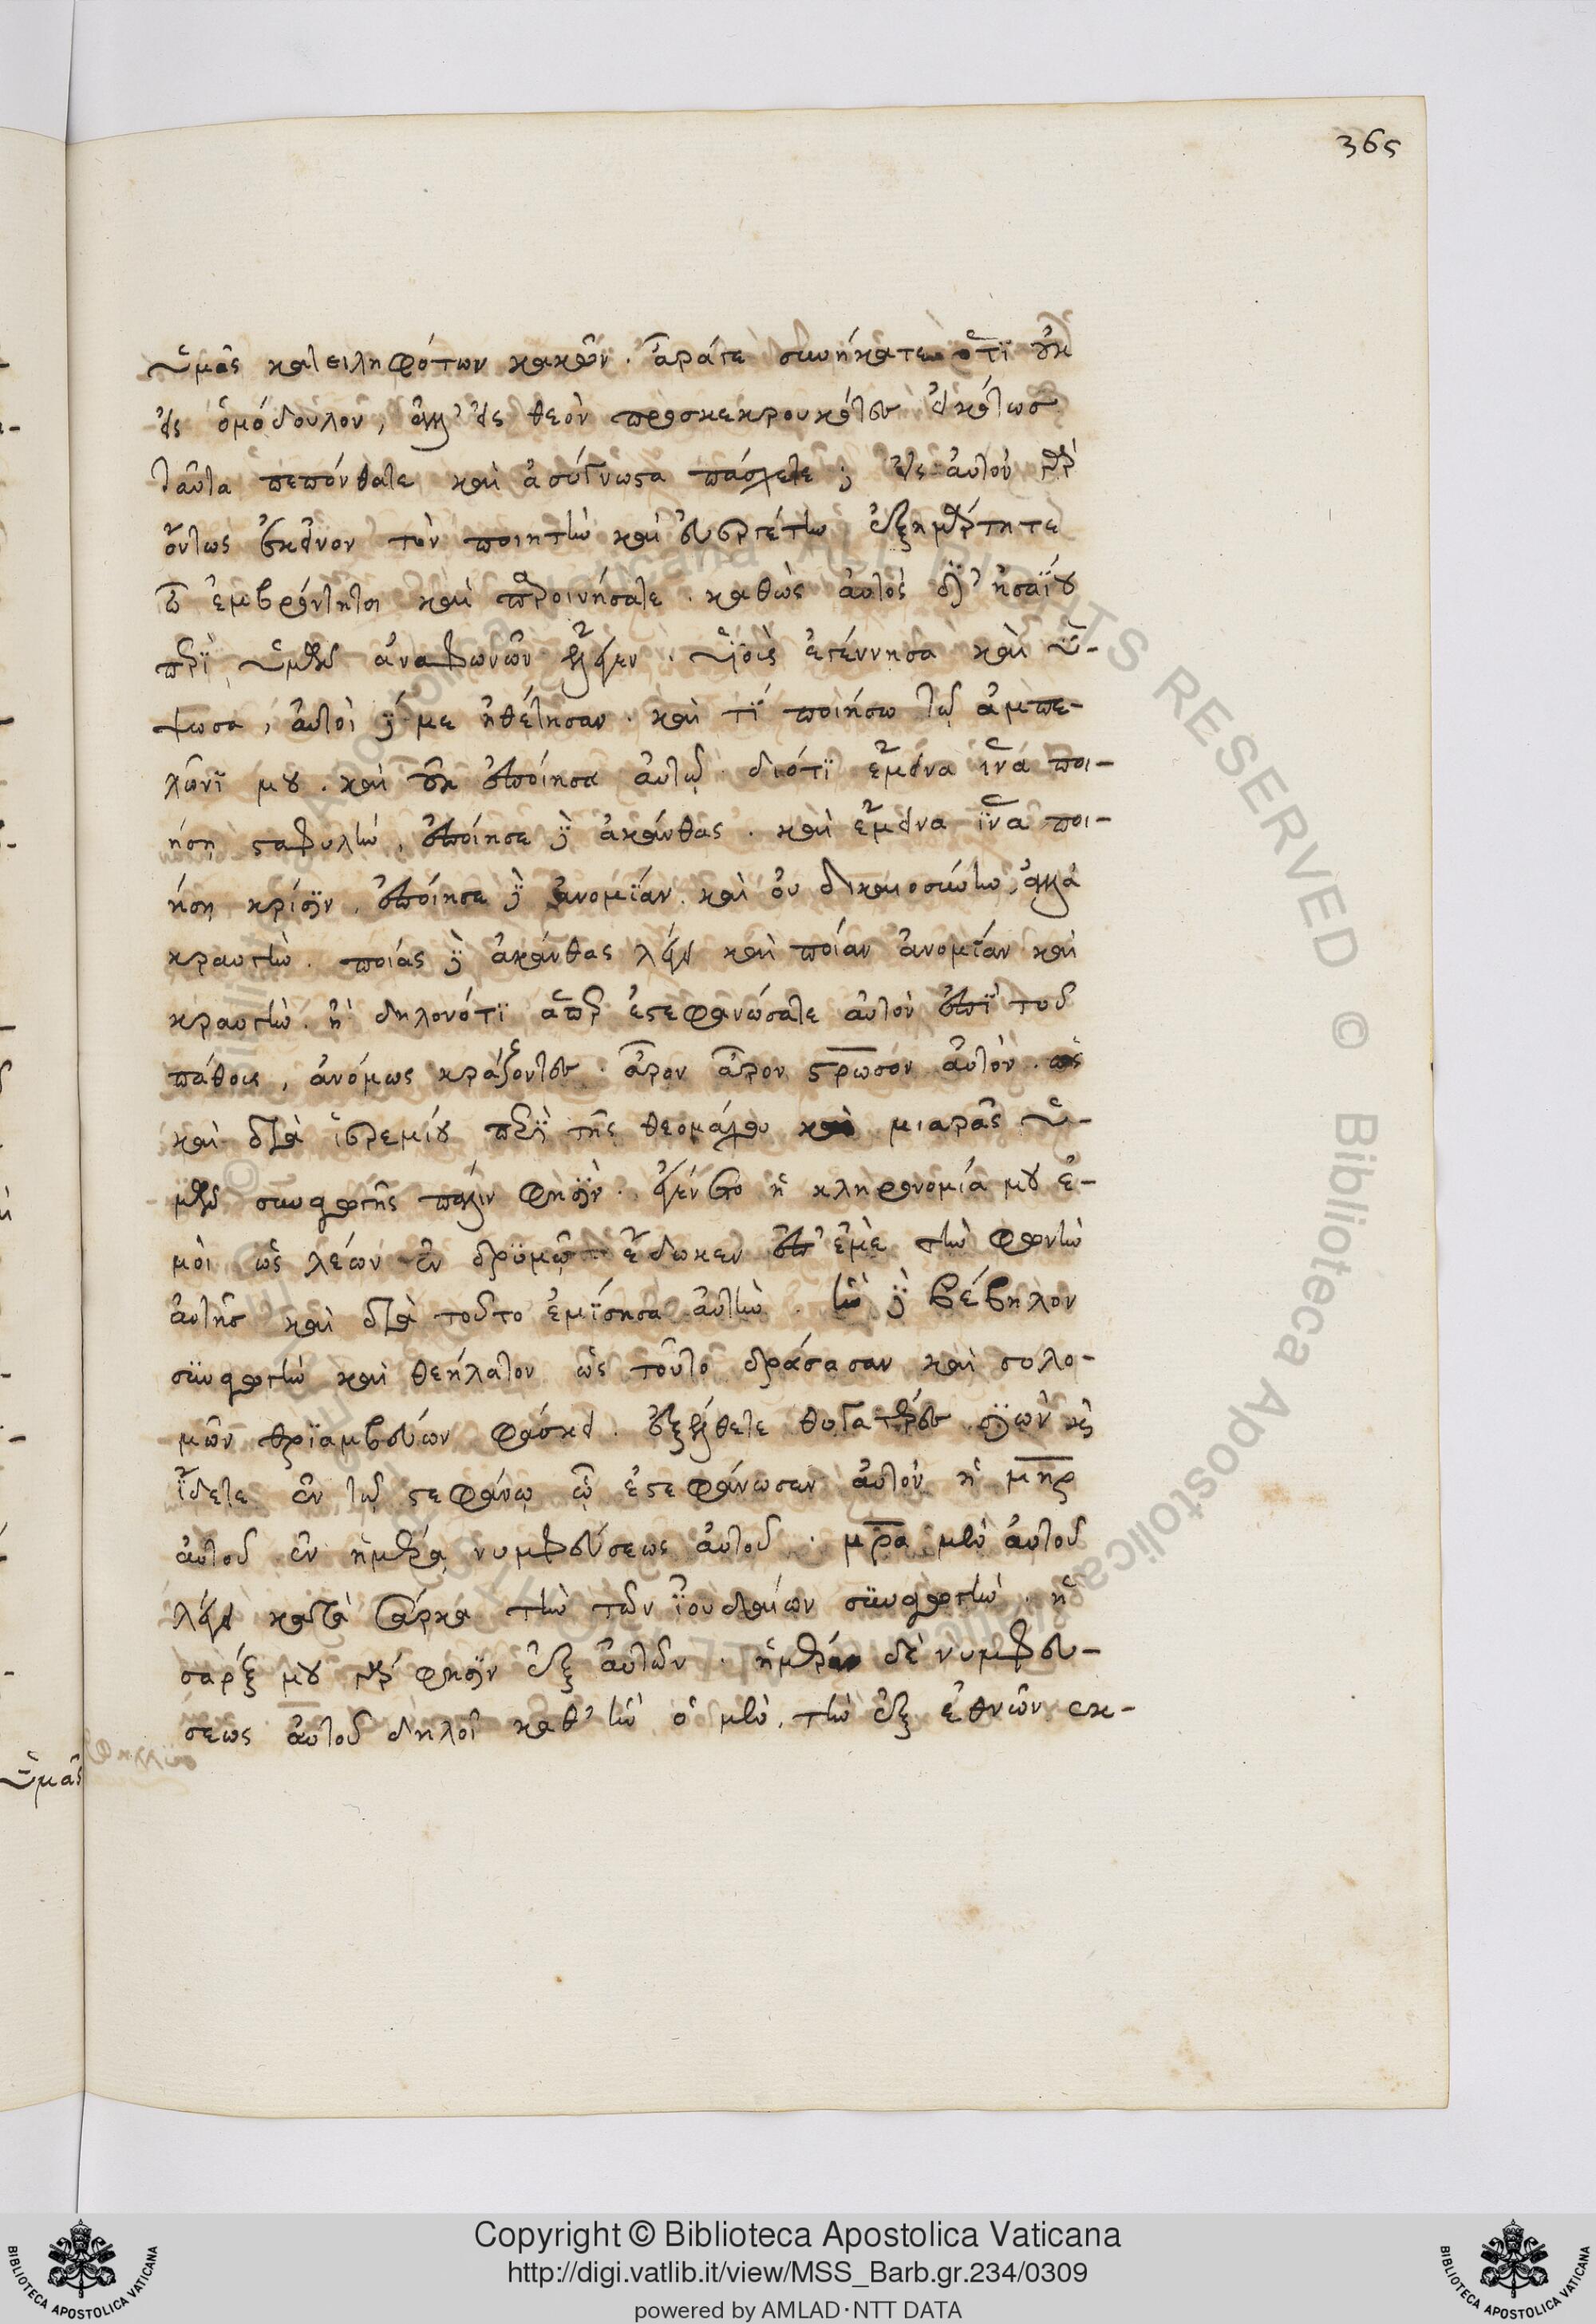 365
ὑμᾶς κατειληφότων κακῶν. ἆρά τε συνήκατε ὅτι οὐκ
εἰς ὁμόδουλον, ἀλλ' εἰς θεὸν προσκεκρουκότες εἰκότως
ταῦτα πεπόνθατε καὶ ἀσύγνωστα πάσχετε; εἰς αὐτὸν γὰρ
ὄντως ἐκεῖνον τὸν ποιητὴν καὶ εὐεργέτην ἐξημάρτητε
ὦ ἐμβρόντητοι καὶ παροινήσατε. καθὼς αὐτὸς δι' ἡσαΐου
περὶ ὑμῶν ἀναφωνῶν ἔλεγεν. υἱοὺς ἐγέννησα καὶ ὕ-
ψωσα, αὐτοὶ δέ με ἠθέτησαν. καὶ τί ποιήσω τῷ ἀμπε-
λῶνί μου. καὶ οὐκ ἐποίησα αὐτῷ. διότι ἔμεινα ἵνα ποι-
ήσῃ σταφυλὴν, ἐποίησε δὲ ἀκάνθας. καὶ ἔμεινα ἵνα ποι-
ήσῃ κρίσιν, ἐποίησε δὲ ἀνομίαν. καὶ οὐ δικαιοσύνην, ἀλλὰ
κραυγήν. ποίας δὲ ἀκάνθας λέγει καὶ ποίαν ἀνομίαν καὶ
κραυγήν. ἢ δηλονότι ἅπερ ἐστεφανώσατε αὐτὸν ἐπὶ τοῦ
πάθους, ἀνόμως κράζοντες. ἆρον ἆρον στρωσον αὐτόν. ὡς
καὶ διὰ ἱερεμίου περὶ τῆς θεομάχου καὶ μιαρᾶς ὑ-
μῶν συναγωγῆς πάλιν φησὶν. ἐγένετο ἡ κληρονομία μου ἐ-
μοὶ ὡς λέων ἐν δρυμῷ. ἔδωκεν ἐπ' ἐμὲ τὴν φωνὴν
αὐτῆς καὶ διὰ τοῦτο ἐμίσησα αὐτήν. ἣν δὲ βέβηλον
συναγωγὴν καὶ θεήλατον ὡς τοῦτο δράσασαν καὶ σολο-
μῶν θριαμβεύων φάσκει. ἐξέλθετε θυγατέρες σιὼν καὶ
ἴδετε ἐν τῷ στεφάνῳ ᾧ ἐστεφάνωσεν αὐτὸν ἡ μηρ
αὐτοῦ ἐν ἡμέρᾳ νυμφεύσεως αὐτοῦ. μρα μὲν αὐτοῦ
λέγει κατὰ σάρκα τὴν τῶν ἰουδαίων συναγωγήν. ἡ
σάρξ μου γὰρ φησὶν ἐξ αὐτῶν. ἡμέραν δὲ νυμφεύ-
σεως αὐτοῦ δηλοῖ καθ' ἣν ὁ μὲν, τὴν ἐξ ἐθνῶν ἐκ-
ὑμᾶς
Copyright © Biblioteca Apostolica Vaticana
http://digi.vatlib.it/view/MSS_Barb.gr.234/0309
powered by AMLAD·NTT DATA